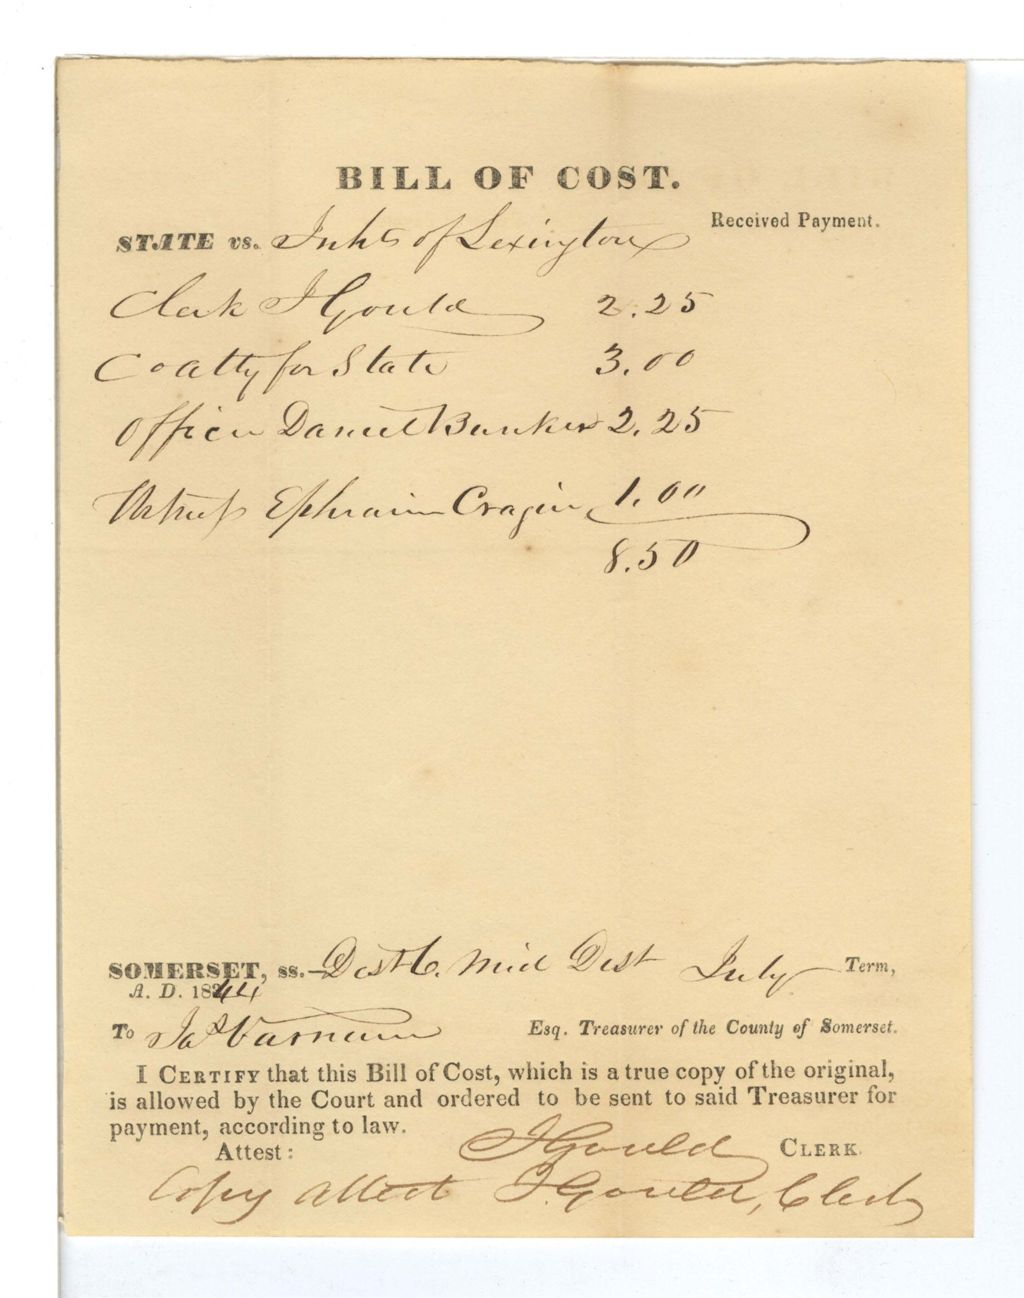 BILL OF COST.
Received Payment.
STATE vs. Inhts of Lexington
Clerk I Gould 2.25
Co atty for State 3.00
Officer Daniel Bunker 2.25
Witness Ephraim Cragin 1.00
8.50
SOMERSET, ss. Dist C. Mid Dist July Term,
A. D. 1844
To Jas Varnum Esq. Treasurer of the County of Somerset.
I CERTIFY that this Bill of Cost, which is a true copy of the original,
is allowed by the Court and ordered to be sent to said Treasurer for
payment, according to law.
Attest: I Gould CLERK.
Copy Attest I. Gould, Clerk